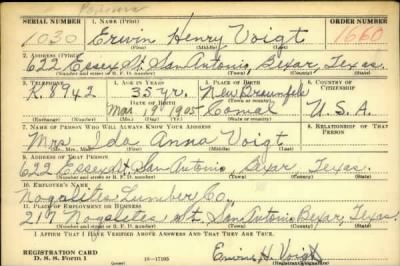 SERIAL NUMBER 1. NAME (Print) ORDER NUMBER
1030 Erwin Henry Voigt 1660
(First) (Middle) (Last)
2. ADDRESS (Print)
622 Essex St. San Antonio, Bexar, Texas.
(Number and street or R. F. D. number) (Town) (County) (State)
3. TELEPHONE 4. AGE IN YEARS 5. PLACE OF BIRTH 6. COUNTRY OF CITIZENSHIP
K. 8942 35 yr. New Braunfels
DATE OF BIRTH (Town or county)
Mar. 18 1905 Comal U.S.A.
(Exchange) (Number) (Mo.) (Day) (Yr.) (State or country)
7. NAME OF PERSON WHO WILL ALWAYS KNOW YOUR ADDRESS 8. RELATIONSHIP OF THAT PERSON
Mrs Ida Anna Voigt
(Mr., Mrs., Miss) (First) (Middle) (Last)
9. ADDRESS OF THAT PERSON
622 Essex St. San Antonio, Bexar Texas.
(Number and street or R. F. D. number) (Town) (County) (State)
10. EMPLOYER'S NAME
Nogalites Lumber Co.,
11. PLACE OF EMPLOYMENT OR BUSINESS
217 Nogalites St. San Antonio, Bexar, Texas.
(Number and street or R. F. D. number) (Town) (County) (State)
I AFFIRM THAT I HAVE VERIFIED ABOVE ANSWERS AND THAT THEY ARE TRUE.
REGISTRATION CARD
D. S. S. Form 1 16—17105 Erwin H. Voigt
(Registrant's signature)